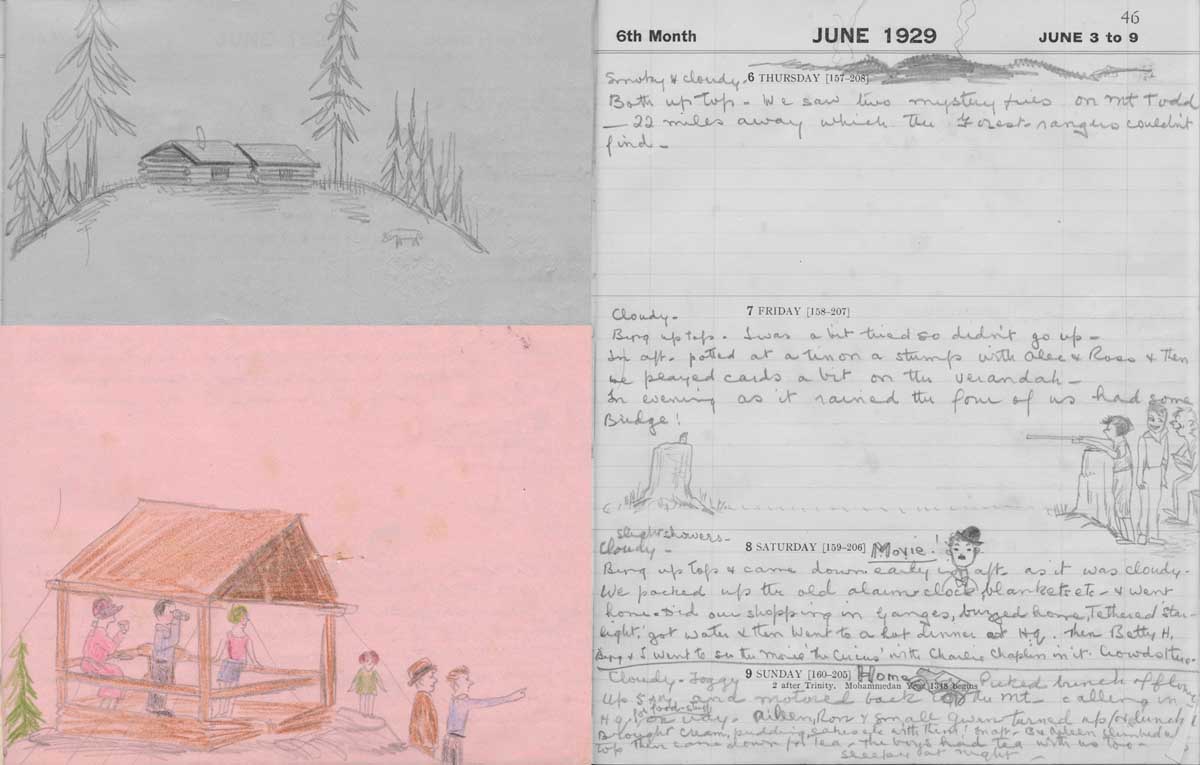 46
6th Month JUNE 1929 JUNE 3 to 9
Smoky & cloudy. 6 THURSDAY [157-208]
Both up top - We saw two mystery fires on Mt Todd
- 22 miles away which the Forest rangers couldn't
find -
Cloudy - 7 FRIDAY [158-207]
Bung up top. I was a bit tired so didn't go up -
In aft. potted at a tin on a stump with Alec & Ross & then
we played cards a bit on the verandah -
In evening as it rained the four of us had some
Bridge!
slight showers -
Cloudy - 8 SATURDAY [159-206] Movie!
Bung up top & came down early in aft. as it was cloudy.
We packed up the old alarm clock, blankets etc - & went
home. Did our shopping in Ganges, buzzed home, Tethered Star
light, got water & then went to a hot dinner at HQ. Then Betty H,
Bung & I went to see the movie 'the Circus' with Charlie Chaplin in it.
9 SUNDAY [160-205] Home
Cloudy - Foggy 2 after Trinity. Mohammedan Year 1348 begins Picked bunch of
Up 5 and motored back the Mt - calling in
for food-stuff
HQ on way. Ron & small Gwen turned up for lunch
Brought cream, pudding, cakes etc with them! In aft. climbed
top then came down for tea - the boys had tea with us too -
at night -